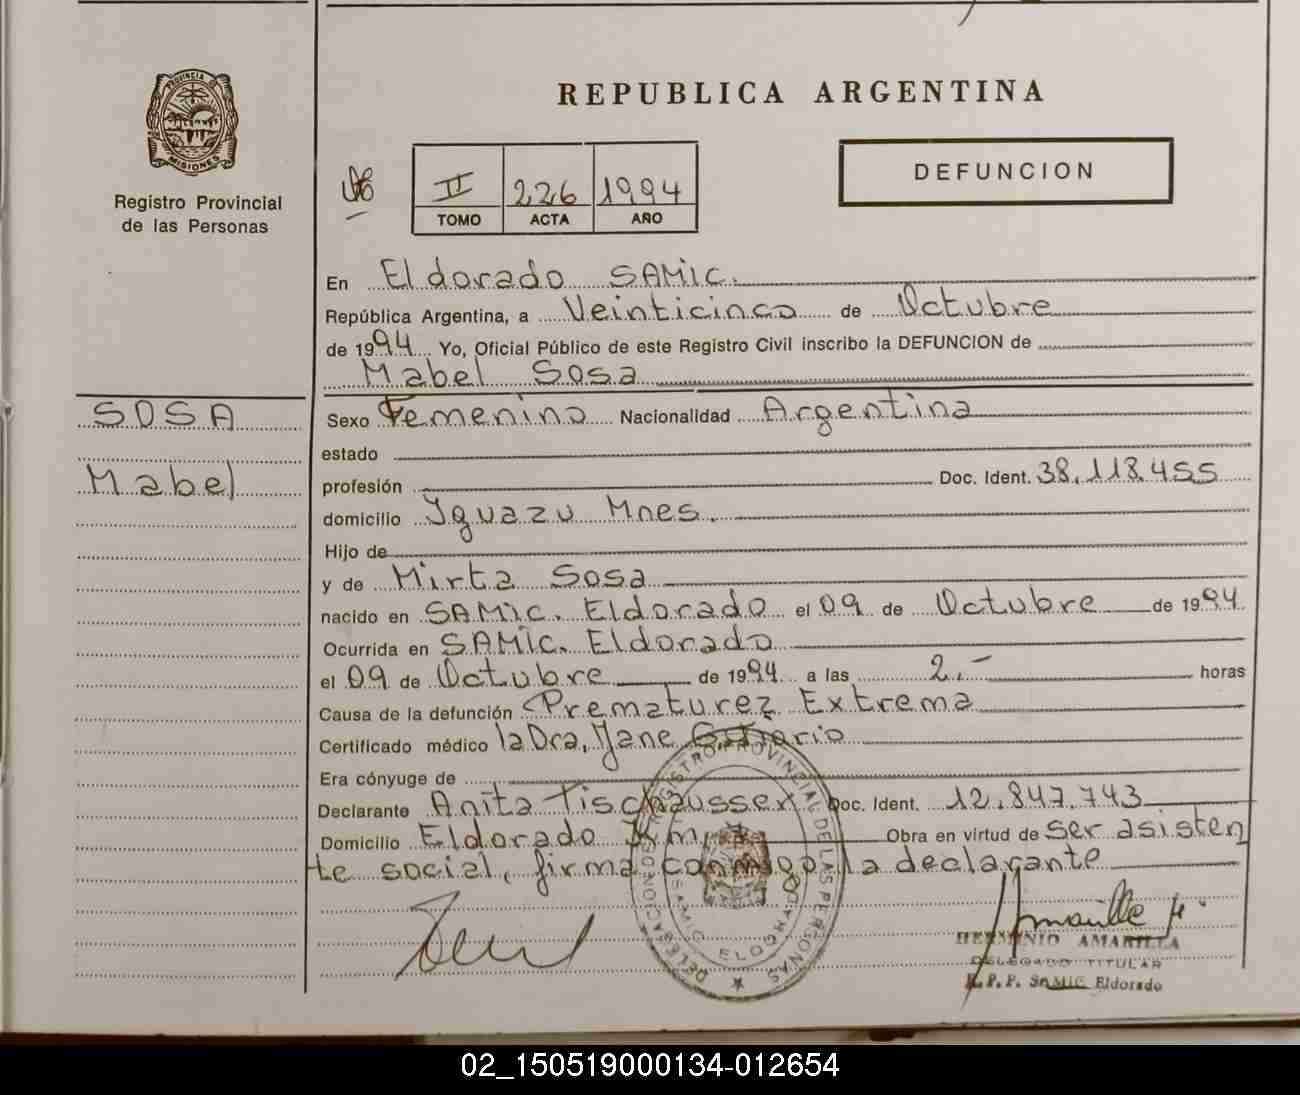 PROVINCIA
MISIONES
Registro Provincial
de las Personas
REPUBLICA ARGENTINA
II 226 1994
TOMO ACTA AÑO
DEFUNCION
En Eldorado SAMIC.
República Argentina, a Veinticinco de Octubre
de 1994 Yo, Oficial Público de este Registro Civil inscribo la DEFUNCION de
Mabel Sosa
SOSA
Mabel
Sexo Femenino Nacionalidad Argentina
estado
profesión Doc. Ident. 38.118.455
domicilio Iguazu Mnes.
Hijo de
y de Mirta Sosa
nacido en SAMIC. Eldorado el 09 de Octubre de 1994
Ocurrida en SAMIC. Eldorado
el 09 de Octubre de 1994 a las 2.- horas
Causa de la defunción Prematurez Extrema
Certificado médico la Dra, Jane
Era cónyuge de
Declarante Anita Tischaussen Doc. Ident. 12.847.743
Domicilio Eldorado Km. Obra en virtud de ser asisten
te social, firma conmigo la declarante
REGISTRO PROVINCIAL DE LAS PERSONAS
SAMIC ELDORADO
HERMINIO AMARILLA
DELEGADO TITULAR
R. P. P. SAMIC Eldorado
02_150519000134-012654